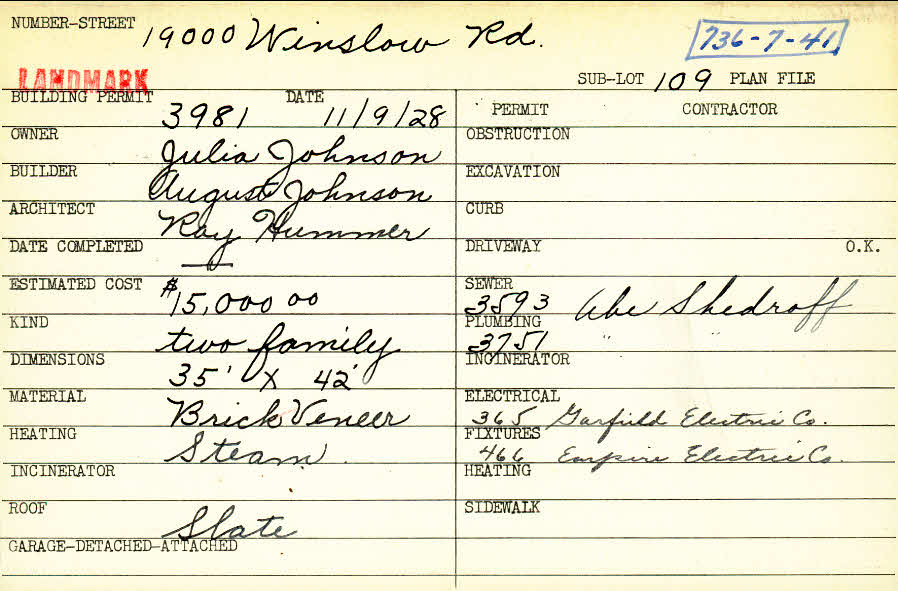 NUMBER-STREET 19000 Winslow Rd. 736-7-41
LANDMARK SUB-LOT 109 PLAN FILE
BUILDING PERMIT 3981 DATE 11/9/28
OWNER Julia Johnson
BUILDER August Johnson
ARCHITECT Ray Hummer
DATE COMPLETED —
ESTIMATED COST $15,000 00
KIND two family
DIMENSIONS 35' X 42'
MATERIAL Brick Veneer
HEATING Steam
INCINERATOR
ROOF Slate
GARAGE-DETACHED-ATTACHED
PERMIT CONTRACTOR
OBSTRUCTION
EXCAVATION
CURB
DRIVEWAY O.K.
SEWER 3593 Abe Shedroff
PLUMBING 3751 " "
INCINERATOR
ELECTRICAL 365 Garfield Electric Co.
FIXTURES 466 Empire Electric Co.
HEATING
SIDEWALK